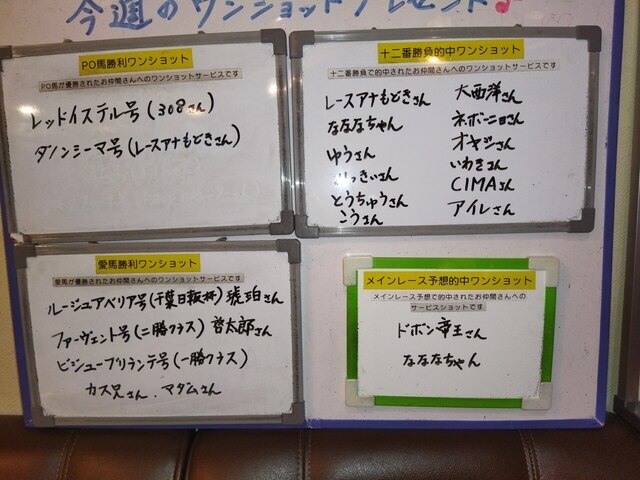 今週のワンショットプレゼント♪
PO馬勝利ワンショット
PO馬が優勝されたお仲間さんへのワンショットサービスです
レッドイステル号(308さん)
ダノンシーマ号(レースアナもどきさん)
十二番勝負的中ワンショット
十二番勝負で的中されたお仲間さんへのワンショットサービスです
レースアナもどきさん
なななちゃん
ゆうさん
っきぃさん
とうちゅうさん
こうさん
大西洋さん
ネボーニョさん
オヤジさん
いわきさん
CIMAさん
アイレさん
愛馬勝利ワンショット
愛馬が優勝されたお仲間さんへのワンショットサービスです
ルージュアベリア号(千葉日報杯)琥珀さん
ファーヴェント号(二勝クラス)啓太郎さん
ビジューブリランテ号(一勝クラス)
カズ兄さん.マダムさん
メインレース予想的中ワンショット
メインレース予想で的中されたお仲間さんへの
サービスショットです
ドボン帝王さん
なななちゃん